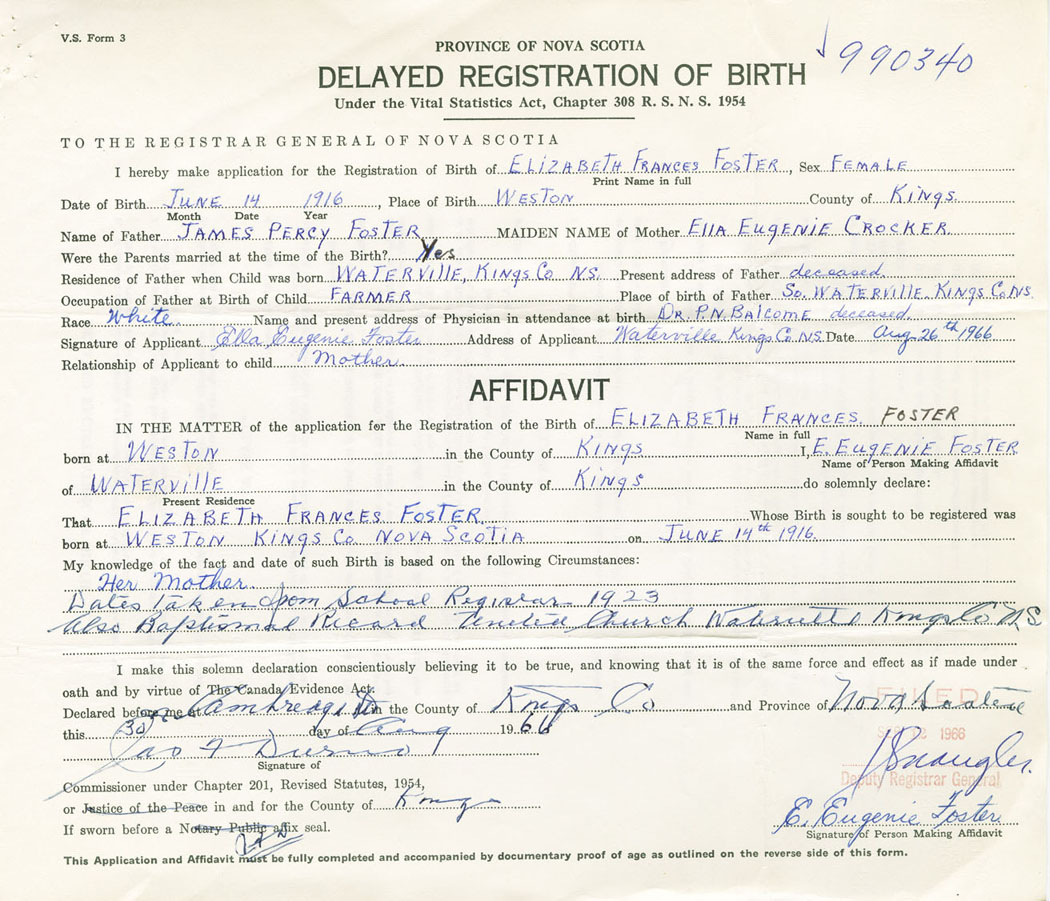 V.S. Form 3
PROVINCE OF NOVA SCOTIA
990340
DELAYED REGISTRATION OF BIRTH
Under the Vital Statistics Act, Chapter 308 R. S. N. S. 1954
TO THE REGISTRAR GENERAL OF NOVA SCOTIA
I hereby make application for the Registration of Birth of ELIZABETH FRANCES FOSTER, Sex FEMALE
Print Name in full
Date of Birth JUNE 14 1916, Place of Birth WESTON County of KINGS.
Month Date Year
Name of Father JAMES PERCY FOSTER MAIDEN NAME of Mother Ella EUGENIE CROCKER
Were the Parents married at the time of the Birth? Yes
Residence of Father when Child was born WATERVILLE, KINGS Co NS. Present address of Father deceased
Occupation of Father at Birth of Child FARMER Place of birth of Father So. WATERVILLE KINGS Co. NS.
Race White Name and present address of Physician in attendance at birth DR. P.N. BALCOME deceased
Signature of Applicant Ella Eugenie Foster Address of Applicant Waterville Kings Co. N.S. Date Aug. 26th 1966
Relationship of Applicant to child Mother
AFFIDAVIT
IN THE MATTER of the application for the Registration of the Birth of ELIZABETH FRANCES FOSTER
Name in full
born at WESTON in the County of KINGS I, E. EUGENIE FOSTER
Name of Person Making Affidavit
of WATERVILLE in the County of KINGS do solemnly declare:
Present Residence
That ELIZABETH FRANCES FOSTER Whose Birth is sought to be registered was
born at WESTON KINGS Co NOVA SCOTIA on JUNE 14th 1916
My knowledge of the fact and date of such Birth is based on the following Circumstances:
Her Mother.
Dates Taken from School Register 1923
Also Baptismal Record United Church Waterville Kings Co N.S
I make this solemn declaration conscientiously believing it to be true, and knowing that it is of the same force and effect as if made under
oath and by virtue of The Canada Evidence Act.
Declared before me at Cambridge in the County of Kings Co and Province of Nova Scotia
FILED
this 30 day of Aug 1966
1966
Signature of
Deputy Registrar General
Commissioner under Chapter 201, Revised Statutes, 1954,
or Justice of the Peace in and for the County of Kings
E. Eugenie Foster
If sworn before a Notary Public affix seal.
Signature of Person Making Affidavit
This Application and Affidavit must be fully completed and accompanied by documentary proof of age as outlined on the reverse side of this form.